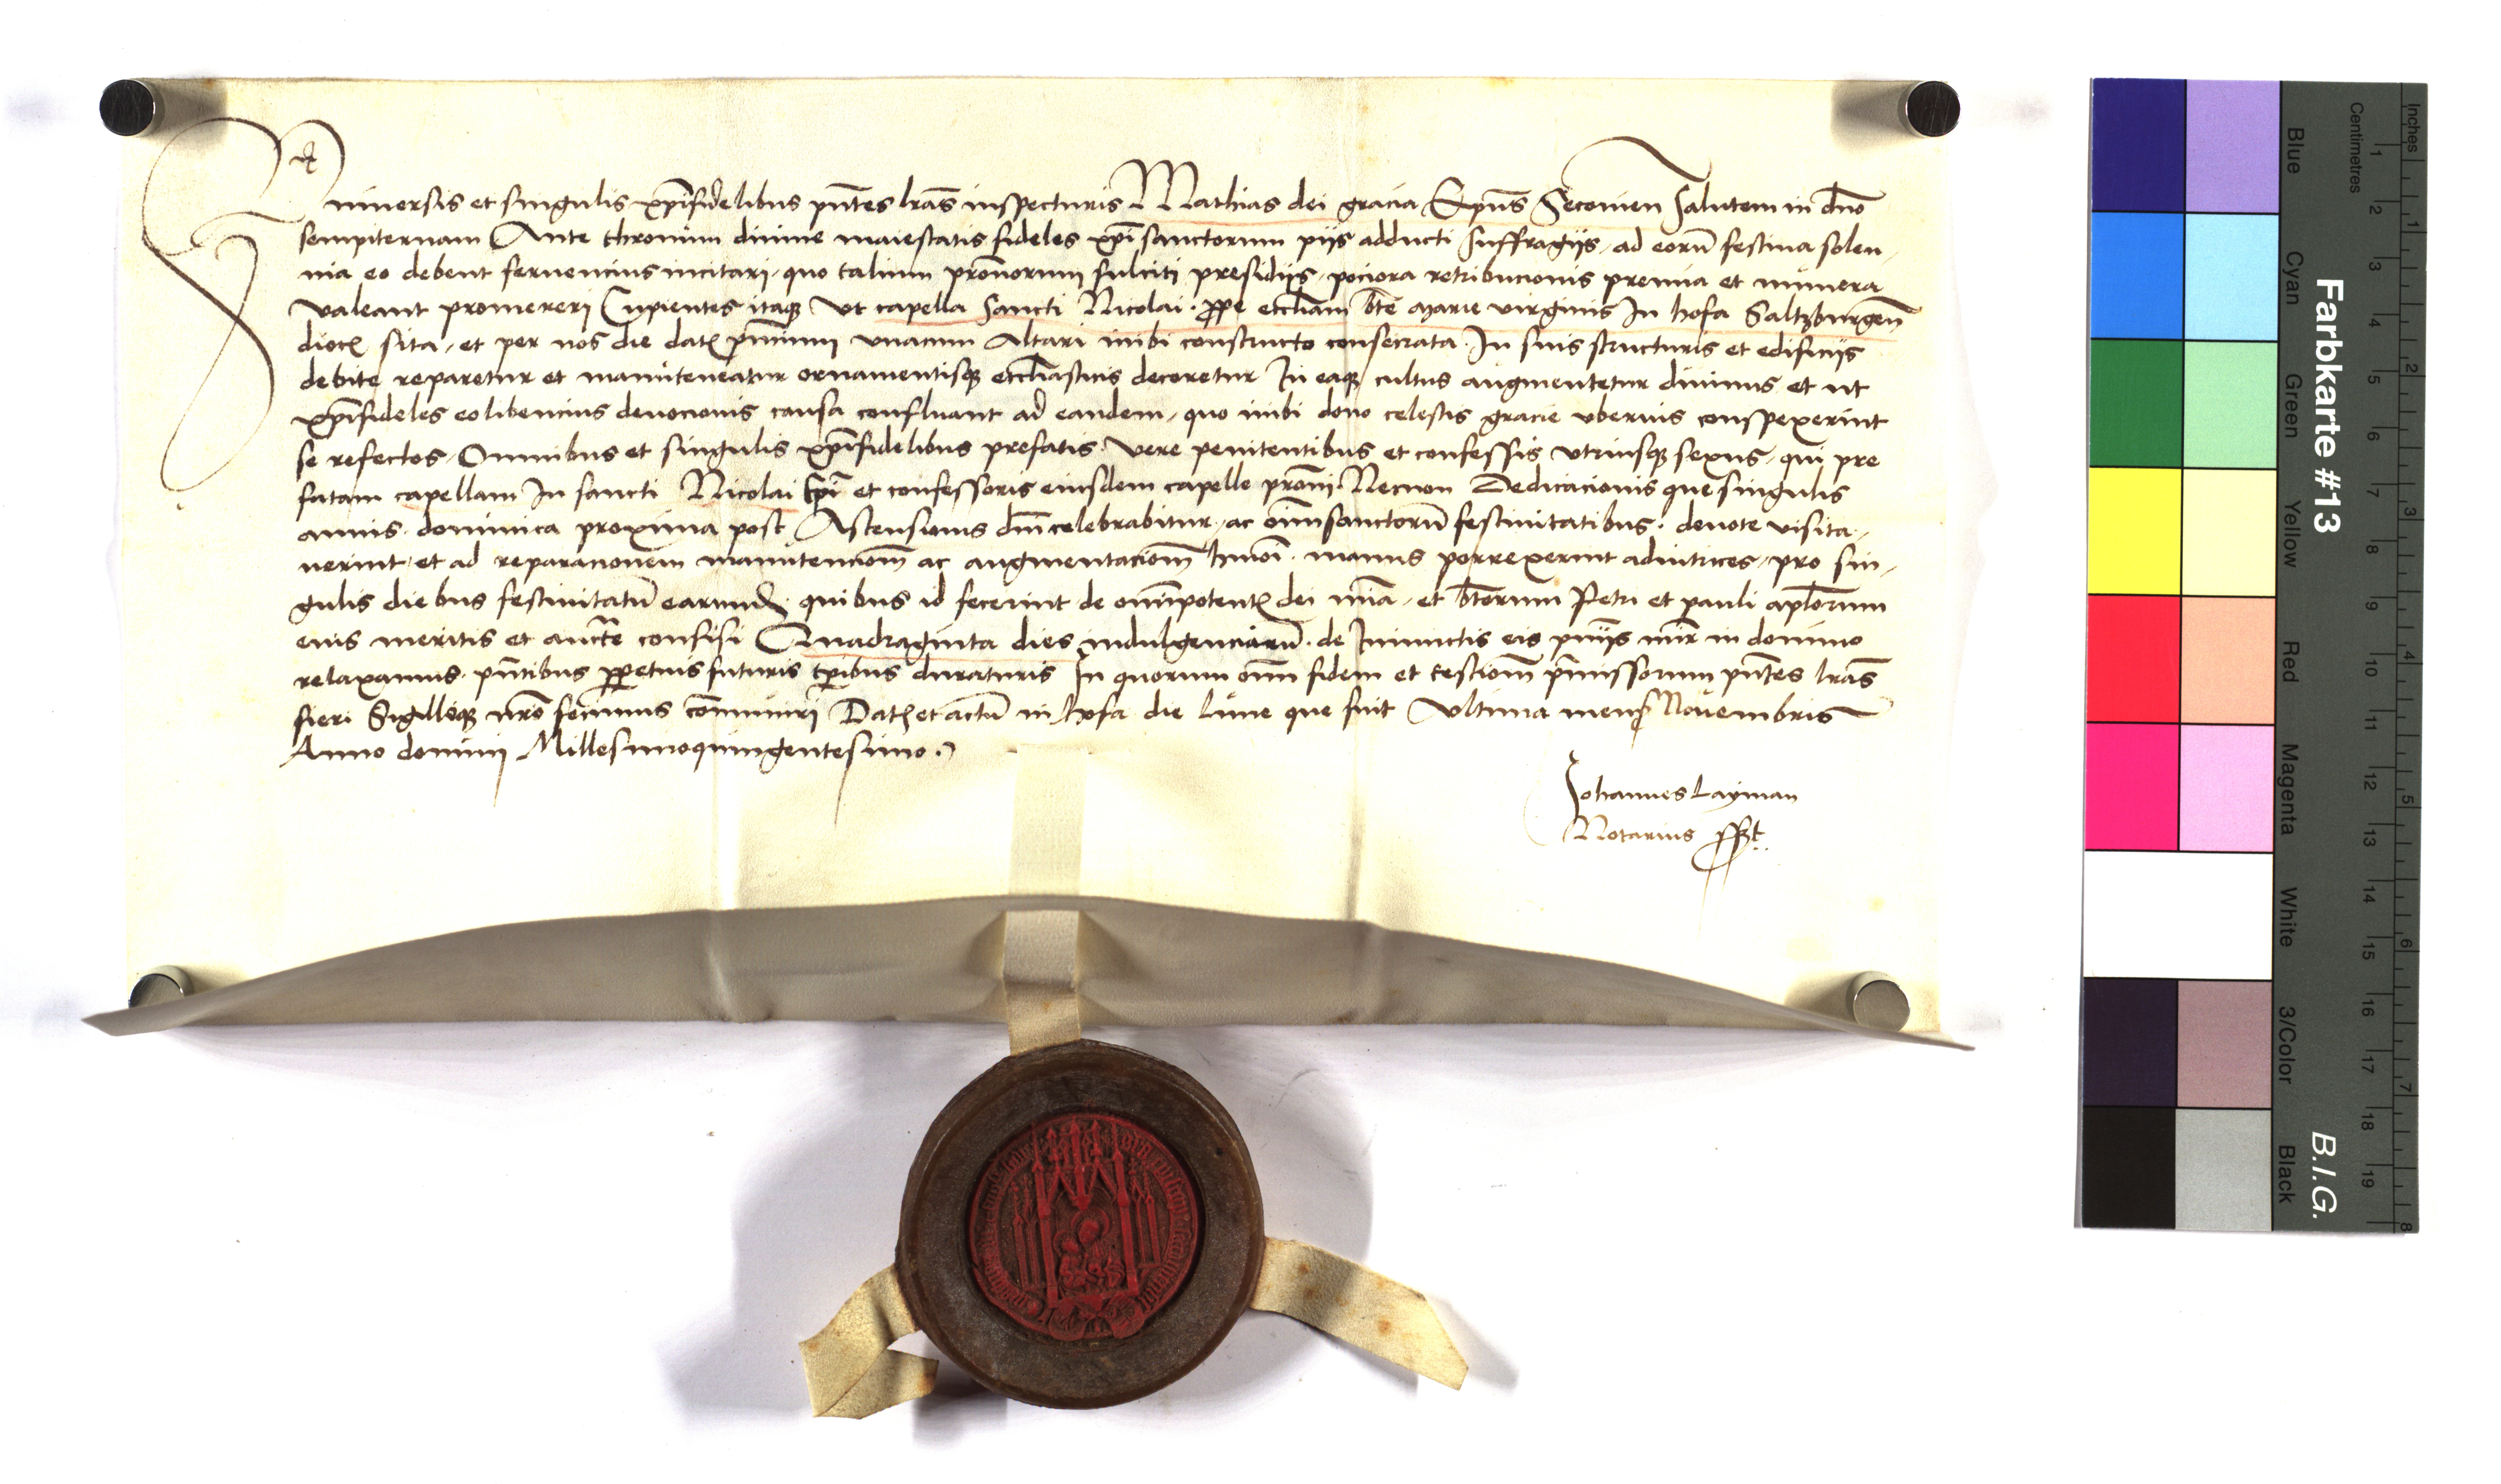 Uniuersis et singulis xp̄ifidelibus pn̄tes lr̄as inspecturis Mathias dei gracia Ep̄us Secouien Salutem in dn̄o
sempiternam Ante thronum diuine maiestatis fideles xp̄i sanctorum piis adducti suffragijs, ad eorū festiua solen,
nia eo debent feruencius incitari, quo talium pron̄orum fulciti presidijs, pociora retribucionis premia et munera
valeant promereri Cupientes itaq̢ Vt capella Sancti Nicolai ꝓpe eccl̄iam btē Marie virginis In hofa Saltzburgen̄
dioc̄ sita, et per nos die dat̄ pn̄cium vnacum Altari inibi constructo consecrata In suis structuris et edificijs
debite reparetur et manuteneatur ornamentisq̢ eccl̄iasticis decoretur In eaq̢ cultus augmentetur diuinus et ut
xp̄ifideles eo libencius deuocionis causa confluant ad eandem, quo inibi dono celestis gracie vberius conspexerint
se refectos, Omnibus et singulis xp̄ifidelibus prefatis vere penitentibus et confessis vtriusq̢ sexus, qui pre
fatam capellam In sancti Nicolai Ep̄i et confessoris eiusdem capelle pron̄i Necnon Dedicacionis que singulis
annis dominica proxima post Ascensionis dn̄i celebrabitur, ac oīm sanctorū festiuitatibus deuote visita,
uerint, et ad reparacionem manutencion̄ ac augmentacion̄ hmōi manus porrexerint adiutrices, pro sin,
gulis diebus festiuitatū earund̄ quibus id fecerint de om̄ipotent̄ dei mīa, et btōrum Petri et pauli apl̄orum
eius meritis et auctte confisi Quadraginta dies indulgenciarū de Iniunctis eis pn̄ijs mīr in domino
relaxamus pn̄tibus ꝑpetuis futuris tp̄ibus duraturis In quorum om̄ fidem et testiom̄ pm̄issorum pn̄tes lr̄as
fieri Sigilloq̢ nr̄o fecimus com̄uniri Dat̄ et actū in hofa die Lune que fuit Vltima mens̄ Nouembris
Anno domini Millesimoquingentesimo.
Johannes Layman
Notarius sszt
Farbkarte #13
B.I.G.
Inches
Centimetres
1 2 3 4 5 6 7 8
1 2 3 4 5 6 7 8 9 10 11 12 13 14 15 16 17 18 19
Blue
Cyan
Green
Yellow
Red
Magenta
White
3/Color
Black